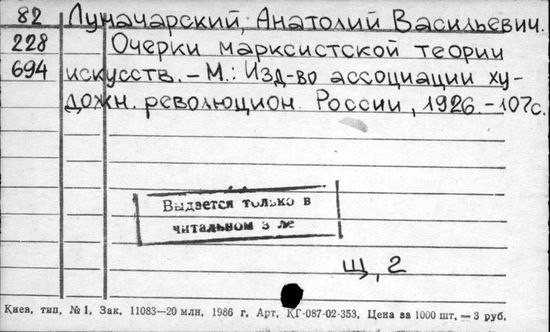 82 Луначарский, Анатолий Васильевич.
228 Очерки марксистской теории
694 искусств. – М.: Изд-во ассоциации ху-
дожн. революцион. России, 1926. – 107с.
Выдается только в
читальном з ле
Щ, 2
Киев, тип. № 1. Зак. 11083—20 млн. 1986 г. Арт. КГ-087-02-353. Цена за 1000 шт. — 3 руб.